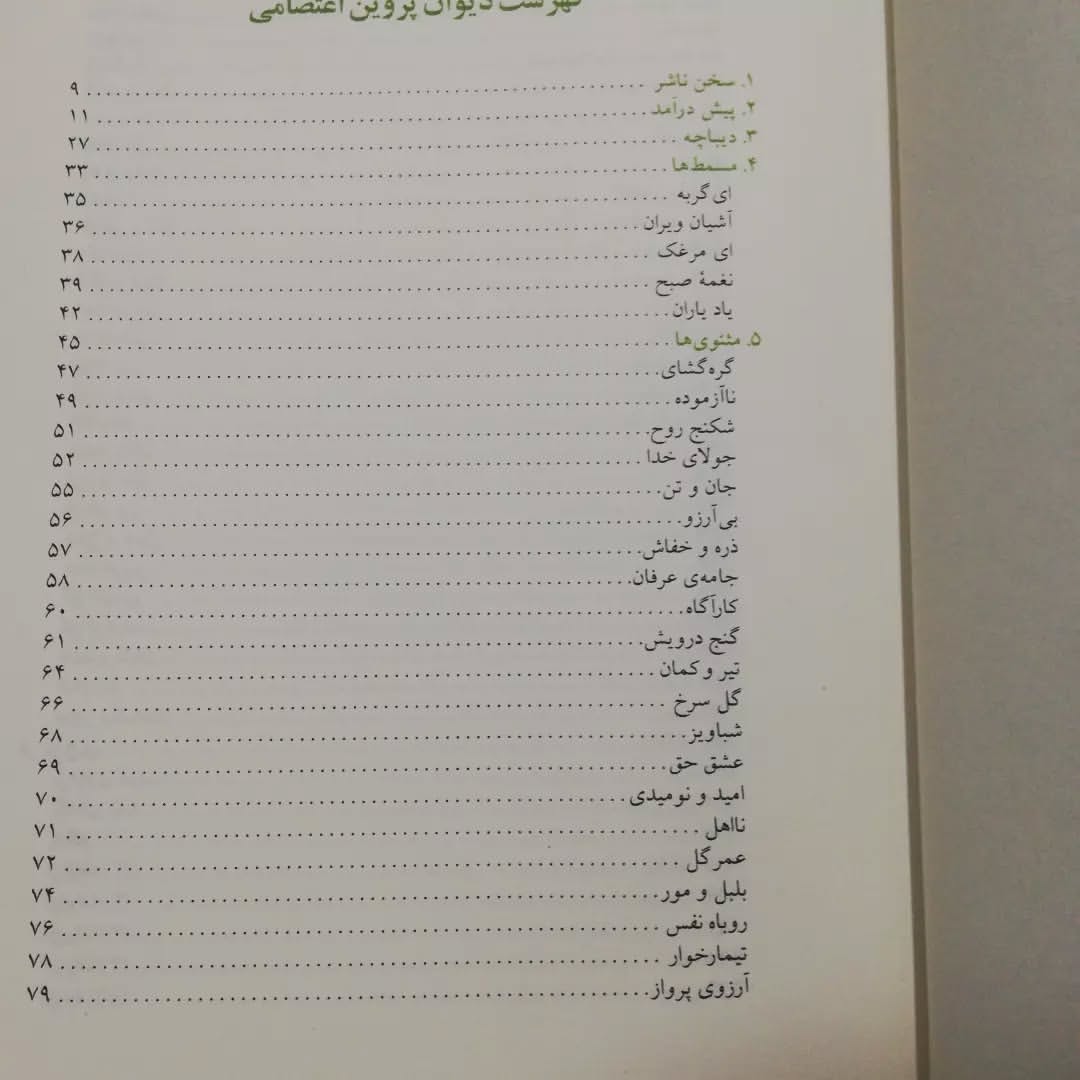 فهرست دیوان پروین اعتصامی
۱. سخن ناشر ........ ۹
۲. پیش درآمد ........ ۱۱
۳. دیباچه ........ ۲۷
۴. مسمط‌ها ........ ۳۳
ای گربه ........ ۳۵
آشیان ویران ........ ۳۶
ای مرغک ........ ۳۸
نغمهٔ صبح ........ ۳۹
یاد یاران ........ ۴۲
۵. مثنوی‌ها ........ ۴۵
گره‌گشای ........ ۴۷
ناآزموده ........ ۴۹
شکنج روح ........ ۵۱
جولای خدا ........ ۵۲
جان و تن ........ ۵۵
بی‌آرزو ........ ۵۶
ذره و خفاش ........ ۵۷
جامه‌ی عرفان ........ ۵۸
کارآگاه ........ ۶۰
گنج درویش ........ ۶۱
تیر و کمان ........ ۶۴
گل سرخ ........ ۶۶
شباویز ........ ۶۸
عشق حق ........ ۶۹
امید و نومیدی ........ ۷۰
نااهل ........ ۷۱
عمر گل ........ ۷۲
بلبل و مور ........ ۷۴
روباه نفس ........ ۷۶
تیمارخوار ........ ۷۸
آرزوی پرواز ........ ۷۹